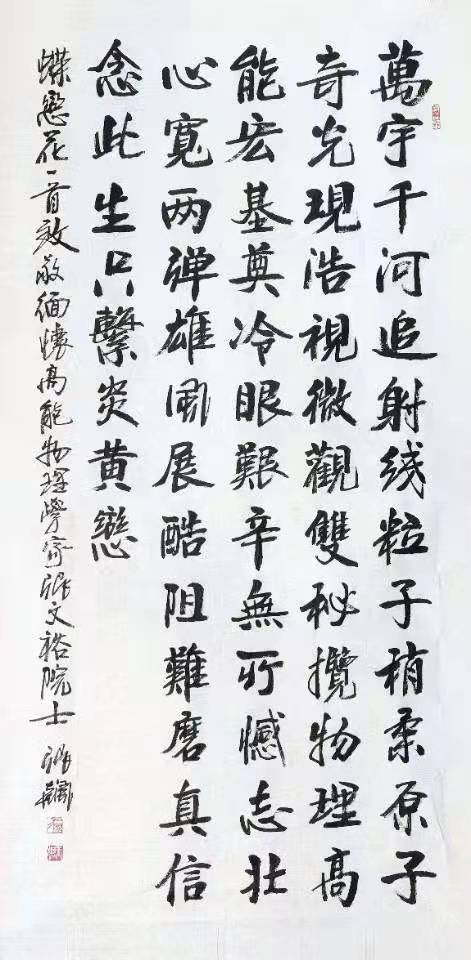 萬宇千河追射线粒子稍柔原子
奇光現浩視微觀雙秘攬物理高
能宏基奠冷眼艱辛無所憾志壯
心寬两弹雄風展酷阻難磨真信
念此生只繫炎黄戀
蝶戀花一首致敬緬懷高能物理學家張文裕院士